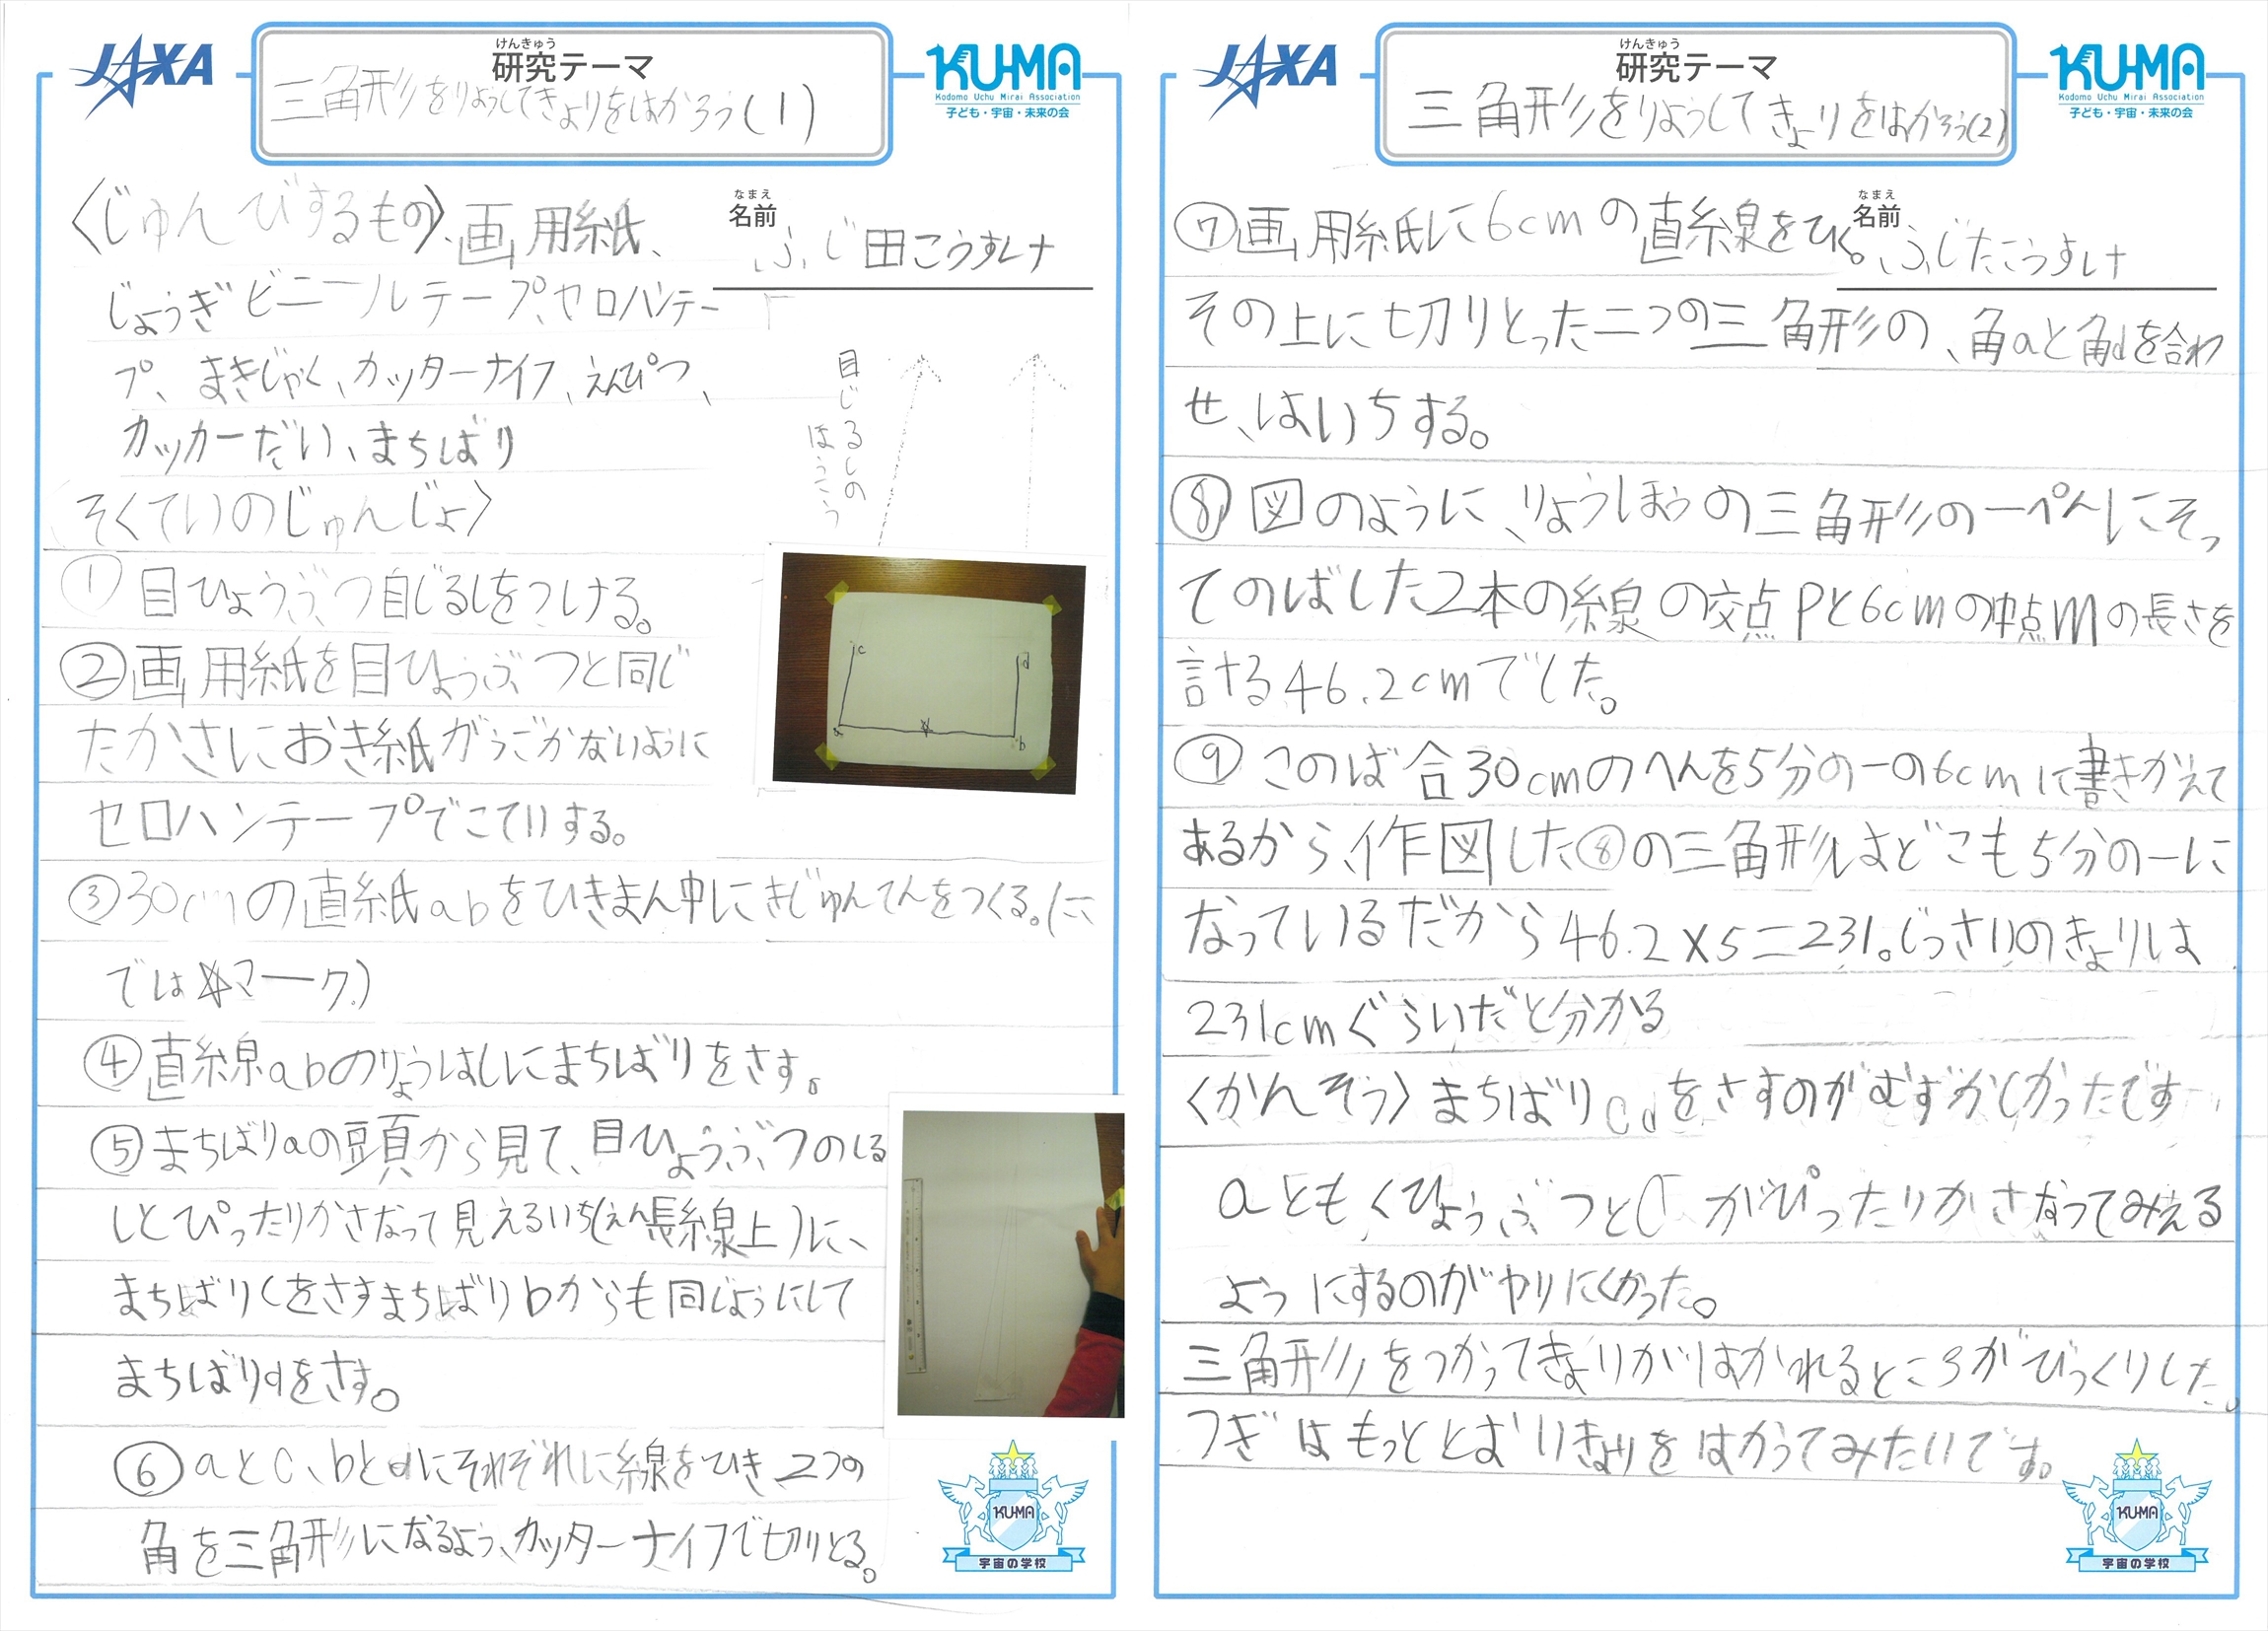 JAXA
けんきゅう
研究テーマ
三角形をりようしてきょりをはかろう(1)
KU-MA
Kodomo Uchu Mirai Association
子ども・宇宙・未来の会
〈じゅんびするもの〉、画用紙、
なまえ
名前
ふじ田こうすけ
じょうぎビニールテープ、セロハンテー
プ、まきじゃく、カッターナイフ、えんぴつ、
カッカーだい、まちばり
目じるしの
ほうこう
〈そくていのじゅんじょ〉
①目ひょうぶつ目じるしをつける。
②画用紙を目ひょうぶつと同じ
たかさにおき紙がうごかないように
セロハンテープでこていする。
c
d
a
b
③30cmの直紙abをひきまん中にきじゅんてんをつくる。(ここ
では☆マーク)
④直線abのりょうはしにまちばりをさす。
⑤まちばりaの頭から見て、目ひょうぶつのしる
しとぴったりかさなって見えるいち(えん長線上)に、
まちばりcをさすまちばりbからも同じようにして
まちばりdをさす。
⑥aとc、bとdにそれぞれに線をひき、2つの
角を三角形になるよう、カッターナイフで切りとる。
KU-MA
宇宙の学校
JAXA
けんきゅう
研究テーマ
三角形をりようしてきょりをはかろう(2)
KU-MA
Kodomo Uchu Mirai Association
子ども・宇宙・未来の会
⑦画用紙に6cmの直線をひく。
なまえ
名前
ふじたこうすけ
その上に切りとった二つの三角形の、角aと角dを合わ
せ、はいちする。
⑧図のように、りょうほうの三角形の一ぺんにそっ
てのばした2本の線の交点Pと6cmの中点Mの長さを
計る46.2cmでした。
⑨このば合30cmのへんを5分の一の6cmに書きかえて
あるから、作図した⑧の三角形はどこも5分の一に
なっているだから46.2×5=231。じっさいのきょりは
231cmぐらいだと分かる
〈かんそう〉まちばりcdをさすのがむずかしかったです
aともくひょうぶつとcがぴったりかさなってみえる
ようにするのがやりにくかった。
三角形をつかってきょりがはかれるところがびっくりした。
つぎはもっととおいきょりをはかってみたいです。
KU-MA
宇宙の学校